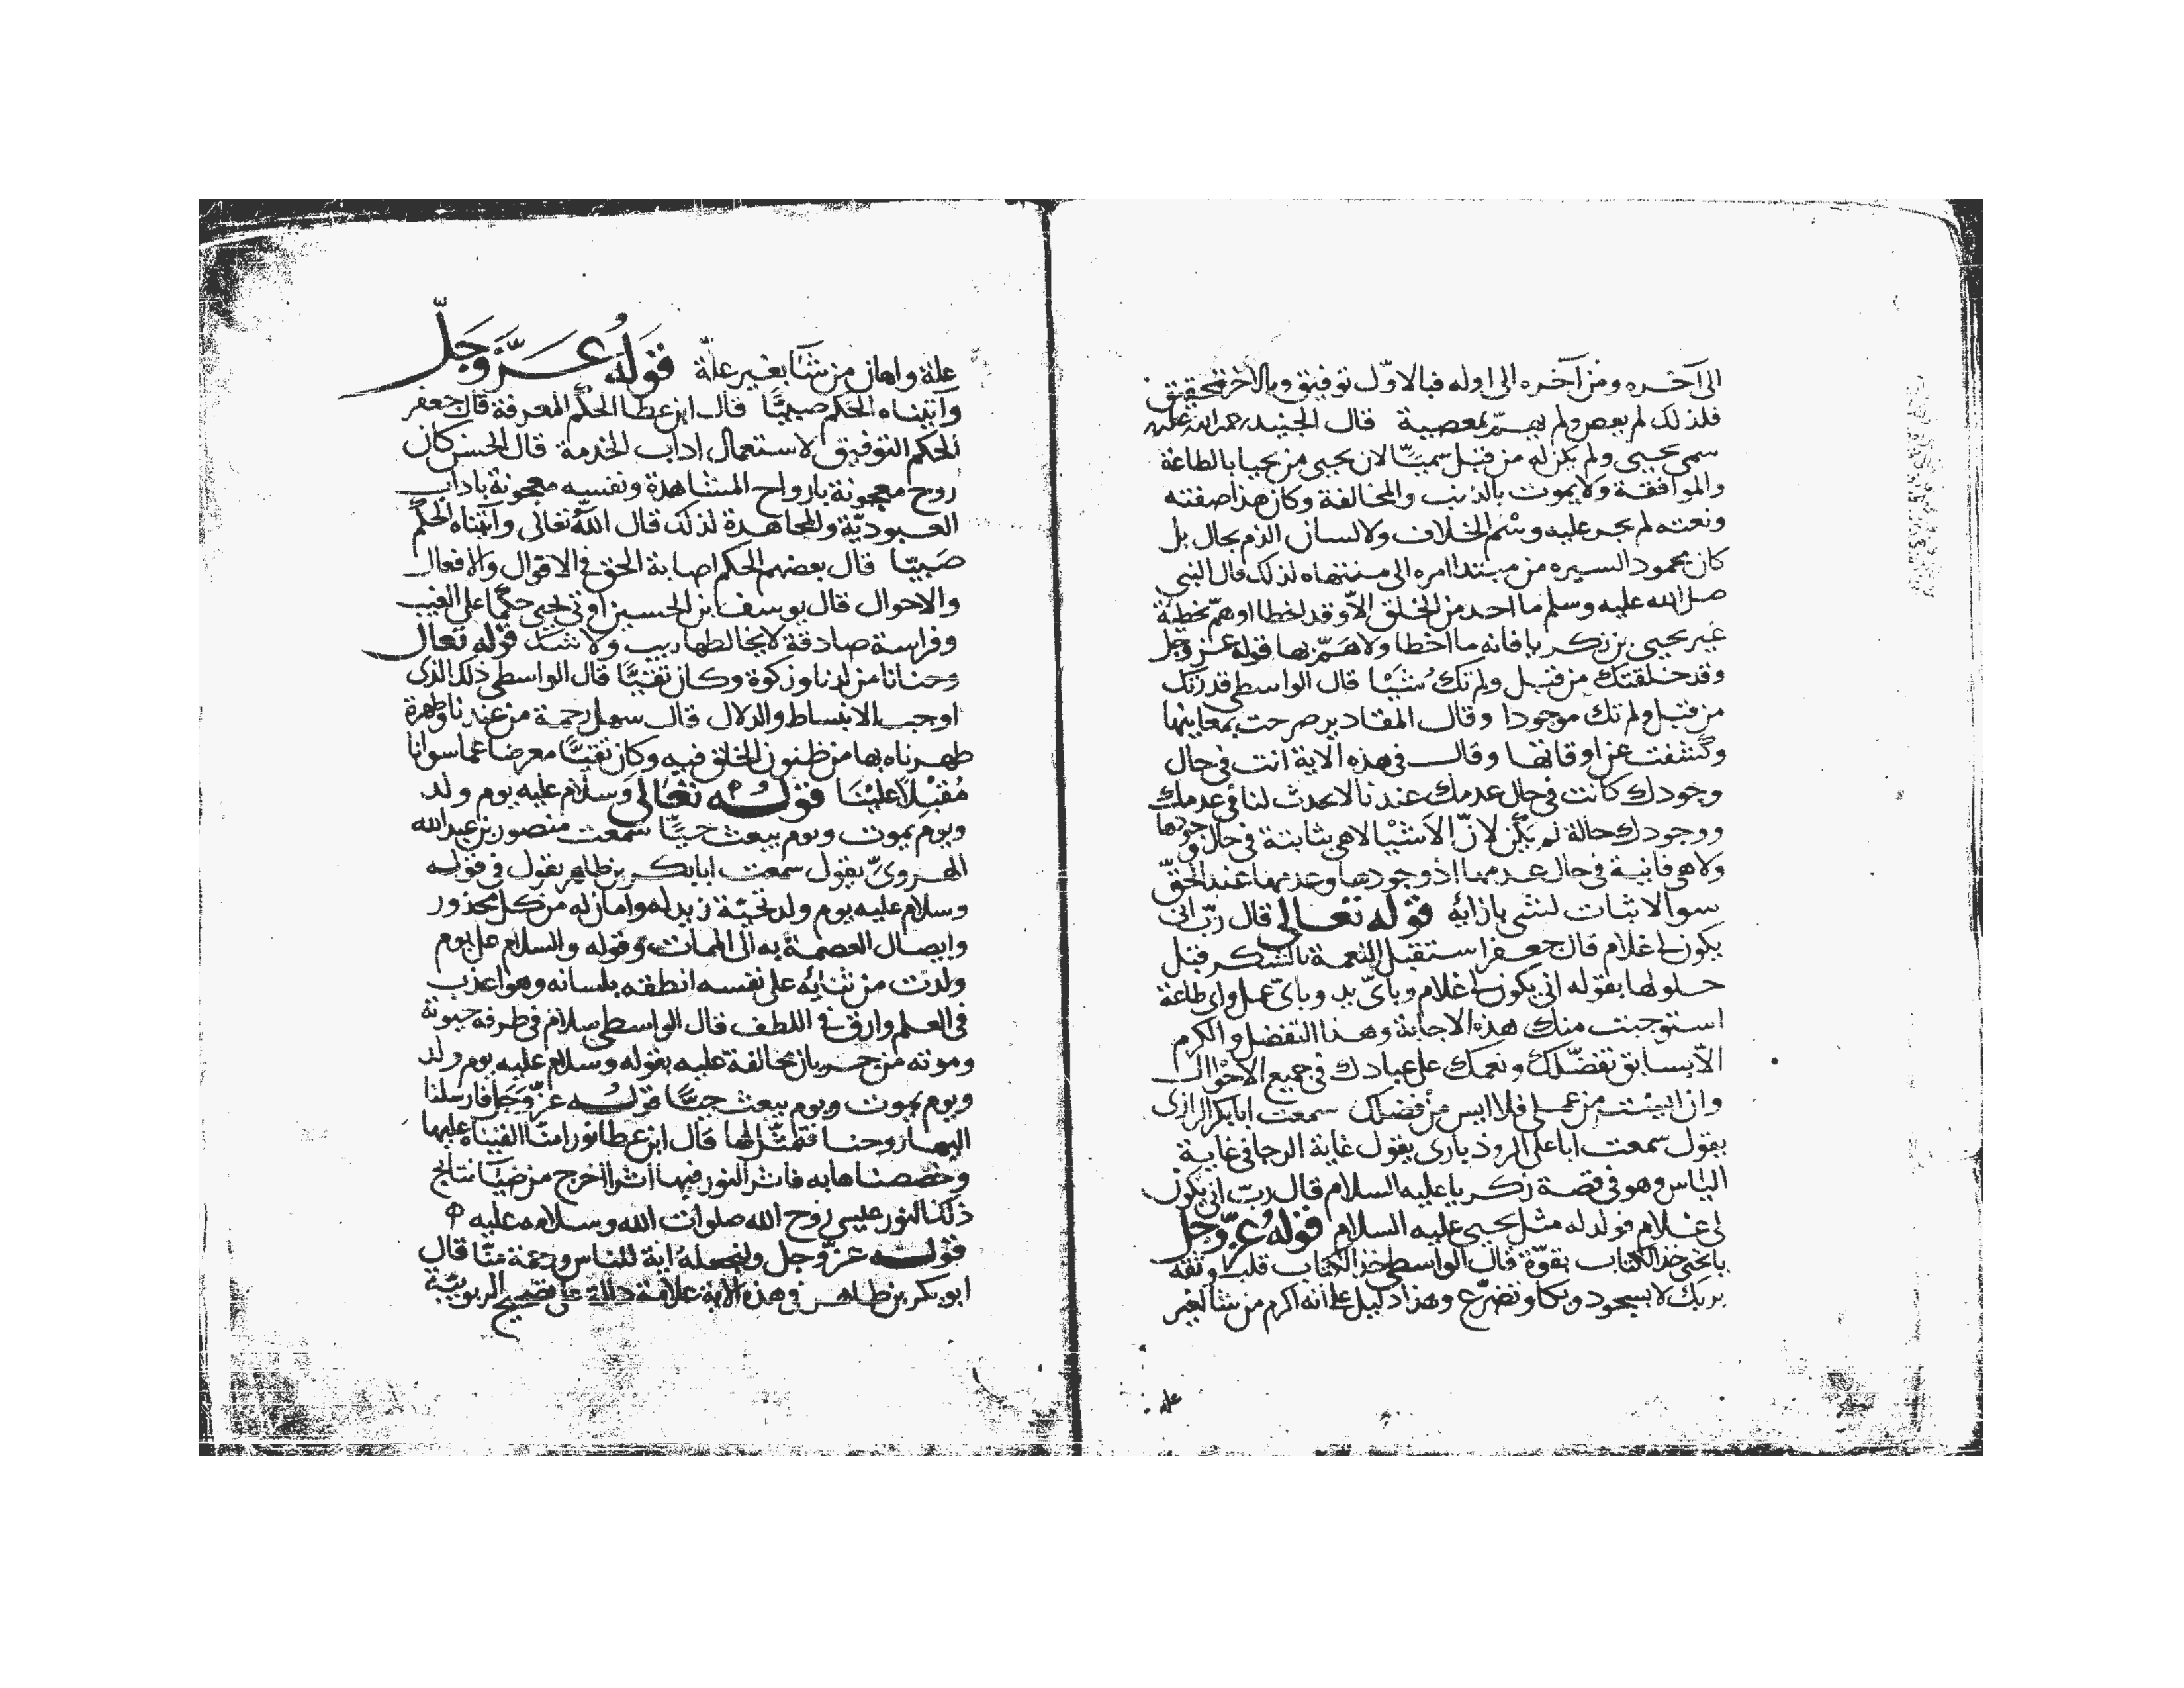 الى آخره ومن آخره الى اوله فبالاول توفيق وبالاخر تحقيق
فلذلك لم يعص ولم يهم بمعصية قال الجنيد رحمة الله عليه
سمى يحيى ولم يكن له من قبل سميّا لان يحيى من يحيا بالطاعة
والموافقة ولا يموت بالذنب والمخالفة وكان هذا صفته
ونعته لم يجر عليه وسم الخلاف ولا لسان الذم بحال بل
كان محمود السيره من مبتدا امره الى منتهاه لذلك قال النبي
صلى الله عليه وسلم ما احد من الخلق الّا وقد اخطا او همّ بخطية
غير يحيى بن زكريا فانه ما اخطا ولا همّ بها قوله عز وجل
وقد خلقتك من قبل ولم تك شَيْا قال الواسطى قدرتك
من قبل ولم تك موجودا وقال المقادير صرحت بمعاينها
وكشفت عن اوقاتها وقال فى هذه الاية انت فى حال
وجودك كانت فى حال عدمك عندنا لا يحدث لنا فى عدمك
ووجودك حالة لم يكن لانّ الاشيا لا هى بثابتة فى حال وجودها
ولا هى فانية فى حال عدمها اذ وجودها وعدمها عند الحقّ
سوا لا ثبات لشى بازايه قوله تعالى قال ربّ انى
يكون لى غلام قال جعفر استقبل النعمة بالشكر قبل
حلولها بقوله انى يكون لى غلام وباىّ يد وباىّ عمل واى طاعة
استوجبت منك هذه الاجابة وهذا التفضل والكرم
الّا بسابق تفضّلك ونعمك على عبادك فى جميع الاحوال
وان ايست من عملى فلا ايس من فضلك سمعت ابا بكر الرازى
يقول سمعت ابا على الروذبارى يقول غاية الرجا فى غاية
الياس وهو فى قصة زكريا عليه السلام قال ربّ انى يكون
لى غلام فولد له مثل يحيى عليه السلام قوله عزّ وجل
يا يحيى خذ الكتاب بقوّة قال الواسطى خذ الكتاب قلب وثقه
بربك لا بسجود وبكا وتضرّع وهذا دليل على انه اكرم من شا لغير
علة
علة واهان من شآ بغير علّة قوله عزّ وجلّ
وآتيناه الحكم صبيًّا قال ابن عطا الحكم المعرفة قال جعفر
الحكم التوفيق لاستعمال اداب الخدمة قال الحسن كان
روح معجونة بارواح المشاهدة ونفسه معجونة باداب
العبوديّة والمجاهدة لذلك قال الله تعالى وآتيناه الحكم
صبيّا قال بعضهم الحكم اصابة الحق فى الاقوال والافعال
والاحوال قال يوسف بن الحسين اوتى يحيى حكما على الغيب
وفراسة صادقة لا يخالطها ريب ولا شك قوله تعالى
وحنانا من لدنا وزكوة وكان تقيّا قال الواسطى ذلك الذى
اوجب الانبساط والدلال قال سهل رحمة من عندنا وطهرة
طهرناه بها من ظنون الخلق فيه وكان تقيّا معرضا عما سوانا
مُقبلا علينا قوله تعالى وسلام عليه يوم ولد
ويوم يموت ويوم يبعث حيّا سمعت منصور بن عبد الله
الهروىّ يقول سمعت ابا بكر بن طاهر يقول فى قوله
وسلام عليه يوم ولد تحيّة وامان له من كل محذور
وايصال العصمة به الى الممات وقوله والسلام على يوم
ولدت من ثنايه على نفسه انطقه بلسانه وهو اعذب
فى العلم وارق فى اللطف قال الواسطى سلام فى طرفه حيوته
وموته من جريان مخالفة عليه بقوله وسلام عليه يوم ولد
ويوم يموت ويوم يبعث حيّا قوله عزّ وجل فارسلنا
اليها روحنا فتمثّل لها قال ابن عطا نورا منّا القيناه عليها
وخصصناها به فاثر النور فيها اثرا اخرج من ضيا نتايج
ذلك النور عيسى روح الله صلوات الله وسلامه عليه
قوله عزّ وجل ولنجعله اية للناس ورحمة منّا قال
ابو بكر بن طاهر فى هذه الاية علامة دالة على تصحيح الربوبيّة